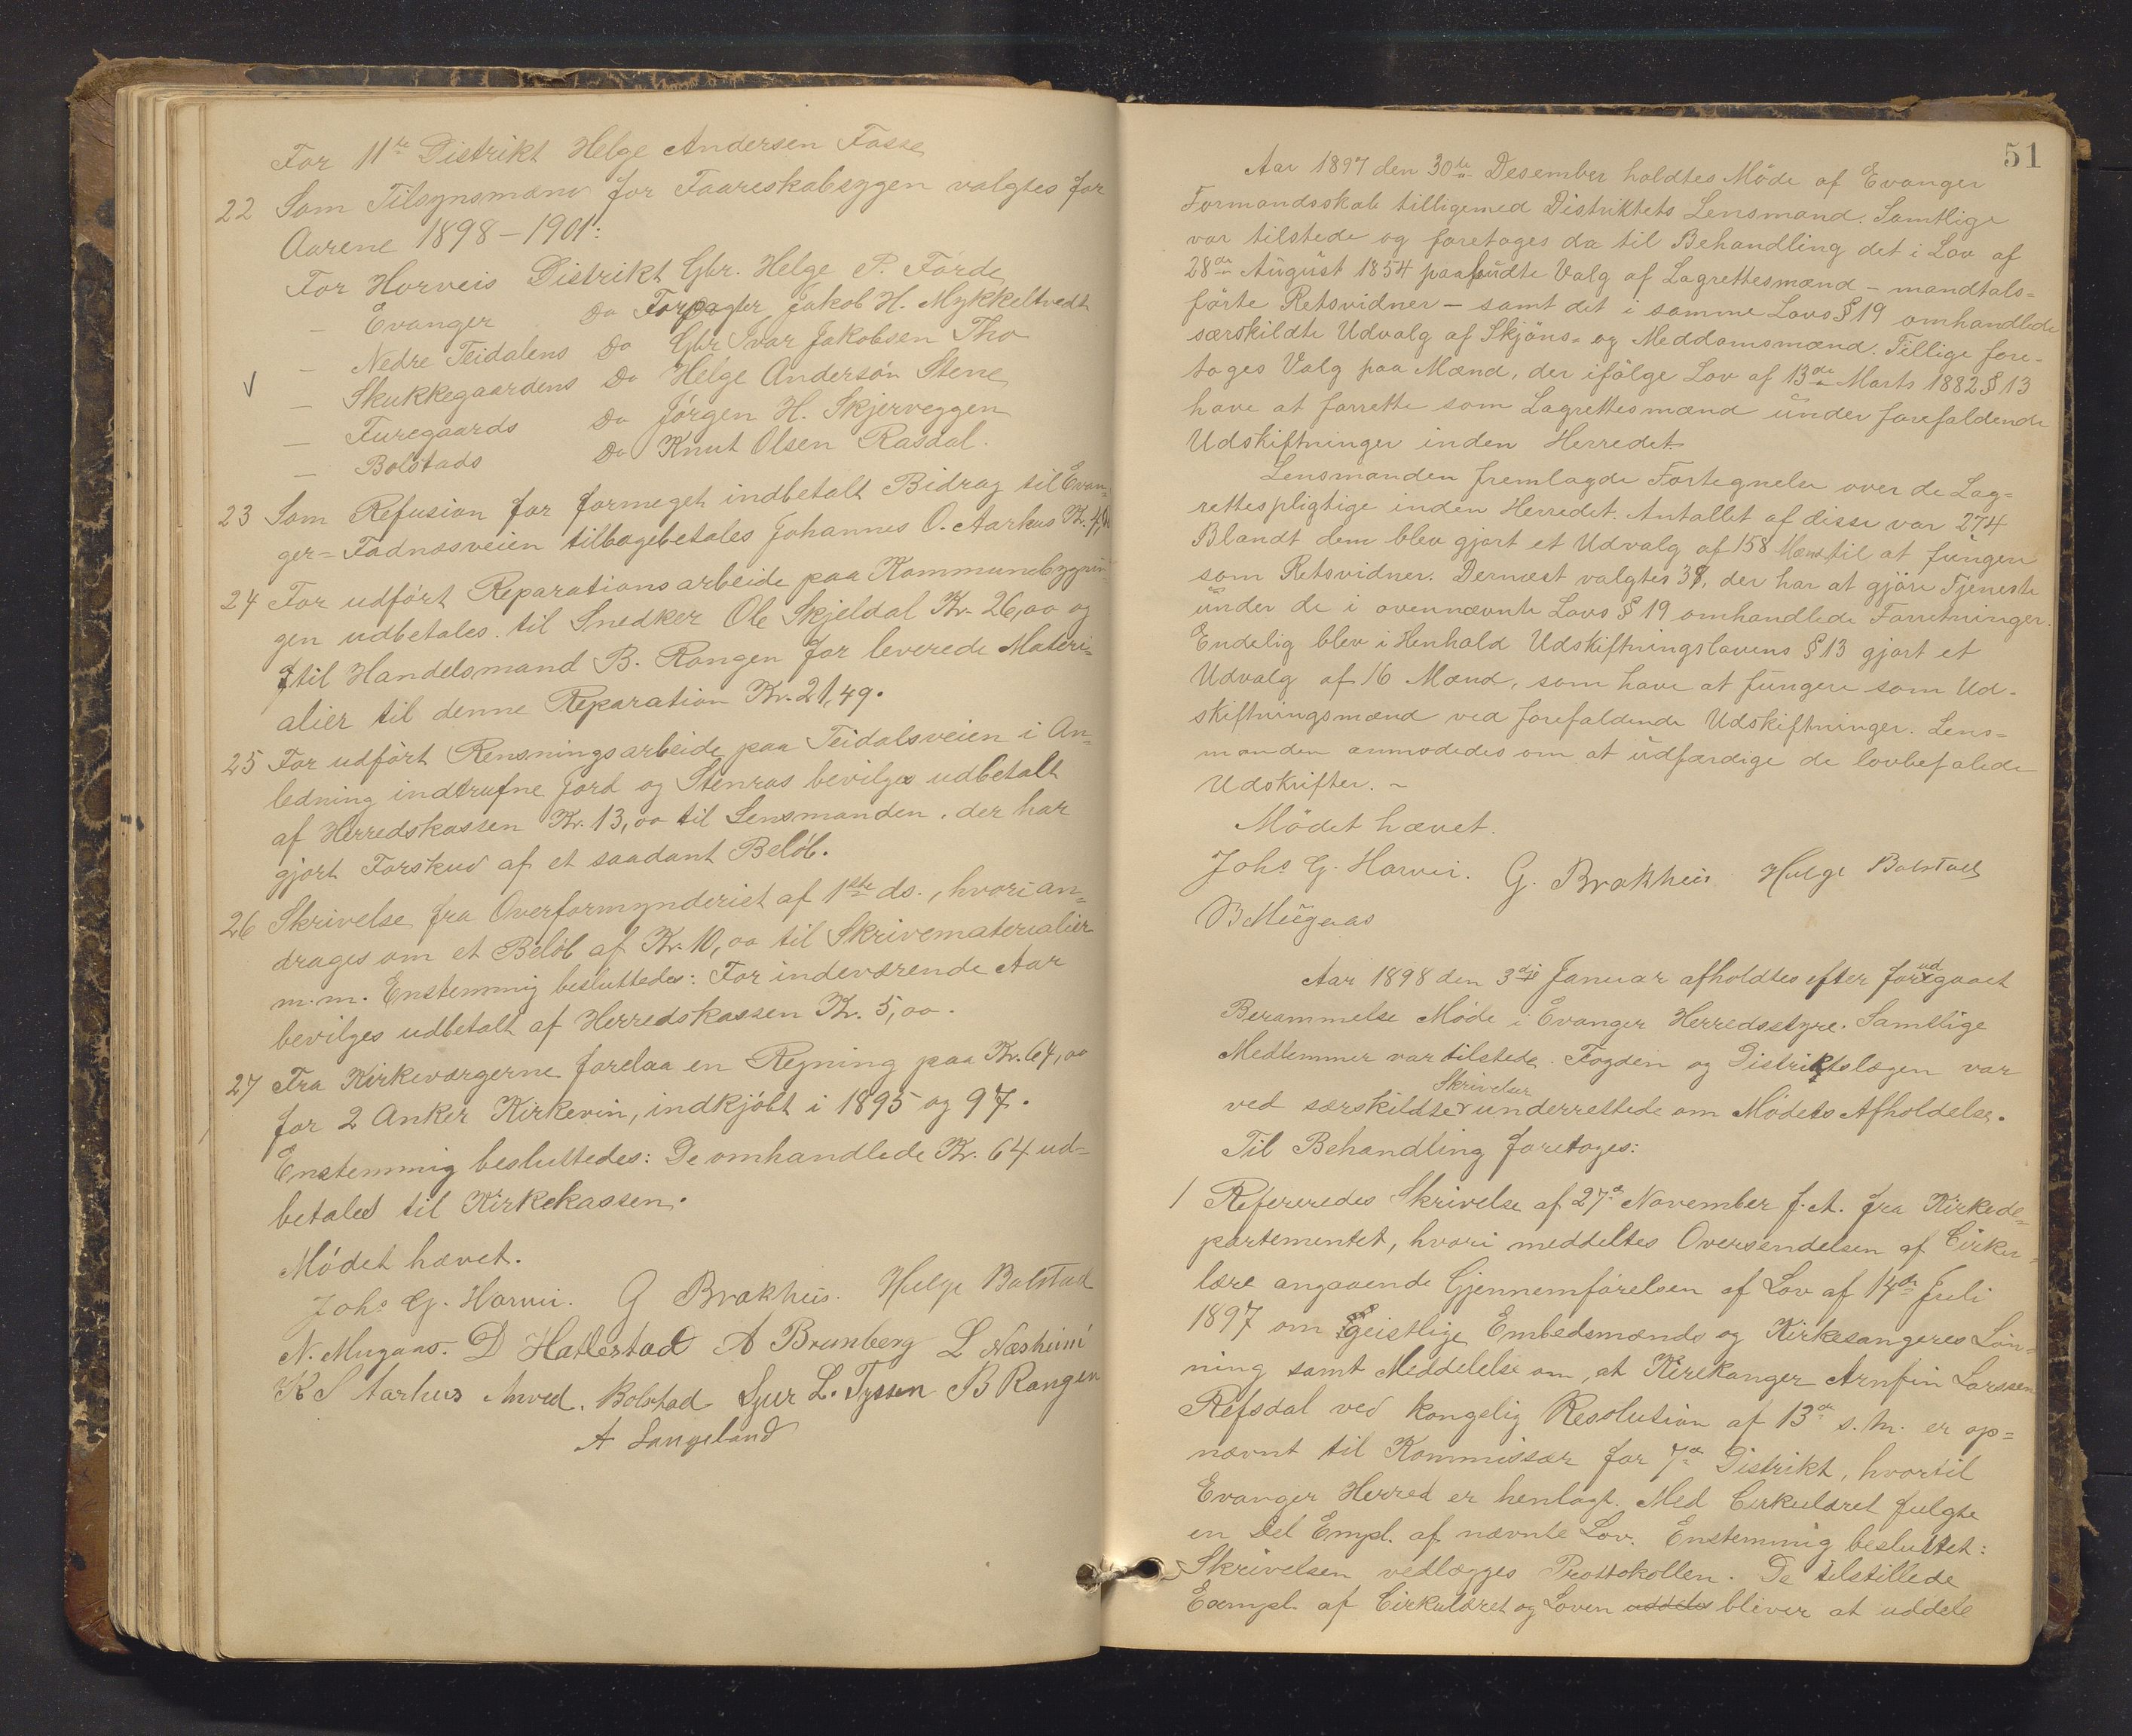 For 11te Distrikt Helge Andersen Fosse
22 Som Tilsynsmænd for Faareskabsygen valgtes for
Aarene 1898-1901:
For Horveis Distrikt Gbr. Helge P. Førde
- Evanger Do Forpagter Jakob H. Mykkeltvedt
- Nedre Teidalens Do Gbr Ivar Jakobsen Tho
V - Skukkegaardens Do Helge Andersøn Stene
- Furegaards Do Jørgen H. Skjerveggen
- Bolstads Do Knut Olsen Rasdal.
23 Som Refusion for formeget indbetalt Bidrag til Evan-
ger=Fadnæsveien tilbagebetales Johannes O. Aarhus Kr.
24 For udført Reparationsarbeide paa Kommunebygnin-
gen udbetales til Snedker Ole Skjeldal Kr. 26,00 og
til Handelsmand B. Rongen for leverede Materi-
alier til denne Reparation Kr. 21,49.
25 For udført Rensningsarbeide paa Teidalsveien i An-
ledning indtrufne Jord og Stenras bevilges udbetalt
af Herredskassen Kr. 13,00 til Lensmanden, der har
gjort Forskud af et saadant Beløb.
26 Skrivelse fra Overformynderiet af 1ste ds., hvori an-
drages om et Beløb af Kr. 10,00 til Skrivematerialier
m.m. Enstemmig besluttedes: For indeværende Aar
bevilges udbetalt af Herredskassen Kr. 5,00.
27 Fra Kirkeværgerne forelaa en Regning paa Kr. 64,00
for 2 Anker Kirkevin, indkjøbt i 1895 og 97.
Enstemmig besluttedes: De omhandlede Kr. 64 ud-
betales til Kirkekassen.
Mødet hævet.
Johs G. Horvei. G Brakheis. Helge Bolstad
N. Mugaas. D Hatlestad A Brunberg L Næsheim
K S Aarhus Amved. Bolstad Sjur L. Tyssen B Rongen
A Langeland
51
Aar 1897 den 30te Desember holdtes Möde af Evanger
Formandsskab tilligemed Distriktets Lensmand. Samtlige
var tilstede og foretoges da til Behandling det i Lov af
28de August 1854 paabudte Valg af Lagrettesmænd - mandtals=
förte Retsvidner - samt det i samme Lovs § 19 omhandlede
særskildte Udvalg af Skjöns= og Meddomsmænd. Tillige fore-
toges Valg paa Mænd, der ifölge Lov af 13de Marts 1882 § 13
have at forrette som Lagrettesmænd under forefaldende
Udskiftninger inden Herredet.
Lensmanden fremlagde Fortegnelse over de Lag=
rettespligtige inden Herredet. Antallet af disse var 274
Blandt dem blev gjort et Udvalg af 158 Mænd til at fungere
som Retsvidner. Dernæst valgtes 38, der har at gjöre Tjeneste
under de i ovennævnte Lovs § 19 omhandlede Forretninger.
Endelig blev i Henhold Udskiftningslovens § 13 gjort et
Udvalg af 16 Mænd, som have at fungere som Ud-
skiftningsmænd ved forefaldende Udskiftninger. Lens=
manden anmodedes om at udfærdige de lovbefalede
Udskrifter. ~
Mödet hævet.
Johs G. Horvei. G. Brakheis Helge Bolstad
B Mugaas
Aar 1898 den 3die Januar afholdtes efter forudgaaet
Berammelse Møde i Evanger Herredsstyre. Samtlige
Medlemmer var tilstede. Fogden og Distriktslægen var
ved særskildte Skrivelser underrettede om Mødets Afholdelse.
Til Behandling foretoges:
1 Refereredes Skrivelse af 27de November f.A. fra Kirkede=
partementet, hvori meddeltes Oversendelsen af Cirku=
lære angaaende Gjennemførelsen af Lov af 14de Juli
1897 om geistlige Embedsmænds og Kirkesangeres Løn=
ning samt Meddelelse om, at Kirekanger Arnfin Larssen
Refsdal ved kongelig Resolution af 13de s.M. er op=
nævnt til Kommissær for 7de Distrikt, hvortil
Evanger Herred er henlagt. Med Cirkulæret fulgte
en Del Empl. af nævnte Lov. Enstemmig besluttet:
Skrivelsen vedlægges Prottokollen. De tilstillede
Exempl. af Cirkulæret og Loven uddeles bliver at uddele